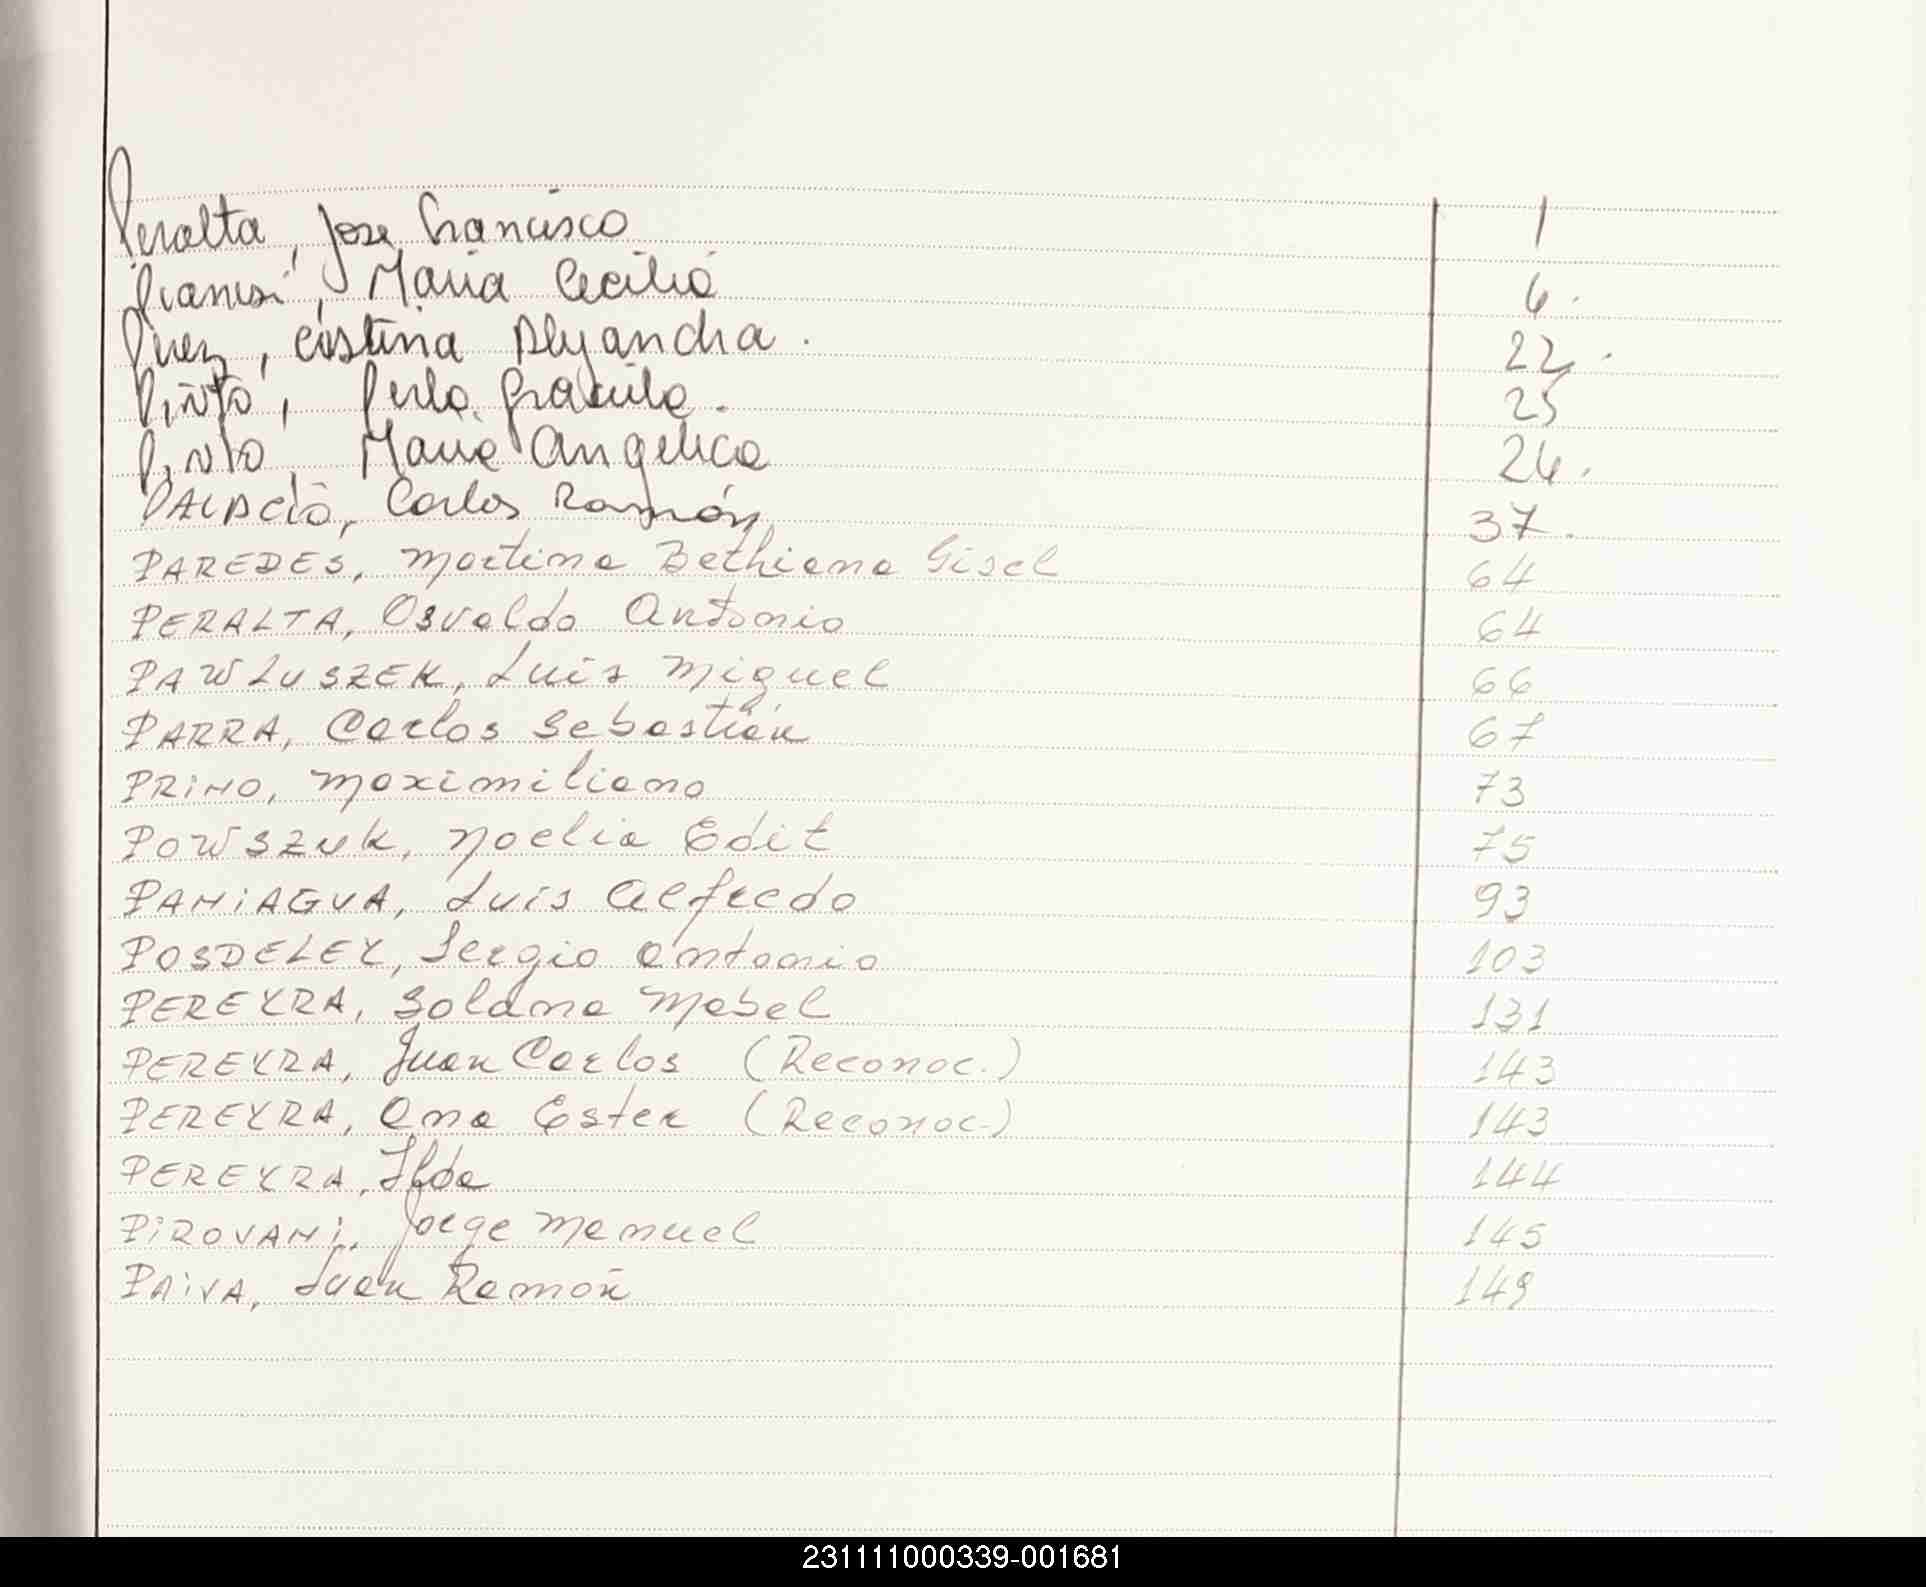 Peralta, Jose Francisco 1
Pianesi, Maria Cecilia 6.
Perez, Cristina Alejandra. 22.
Pinto, Perla Graciela. 25
Pinto, Maria Angelica 26.
PALACIO, Carlos Ramón 37.
PAREDES, Martina Bethiana Gisel 64
PERALTA, Osvaldo Antonio 64
PAWLUSZEK, Luis Miguel 66
PARRA, Carlos Sebastián 67
PRINO, Maximiliano 73
POWSZUK, Noelia Edit 75
PANIAGUA, Luis Alfredo 93
POSDELEY, Sergio Antonio 103
PEREYRA, Solana Mabel 131
PEREYRA, Juan Carlos (Reconoc.) 143
PEREYRA, Ana Ester (Reconoc.) 143
PEREYRA, Ilda 144
PIROVANI, Jorge Manuel 145
PAIVA, Juan Ramón 149
231111000339-001681